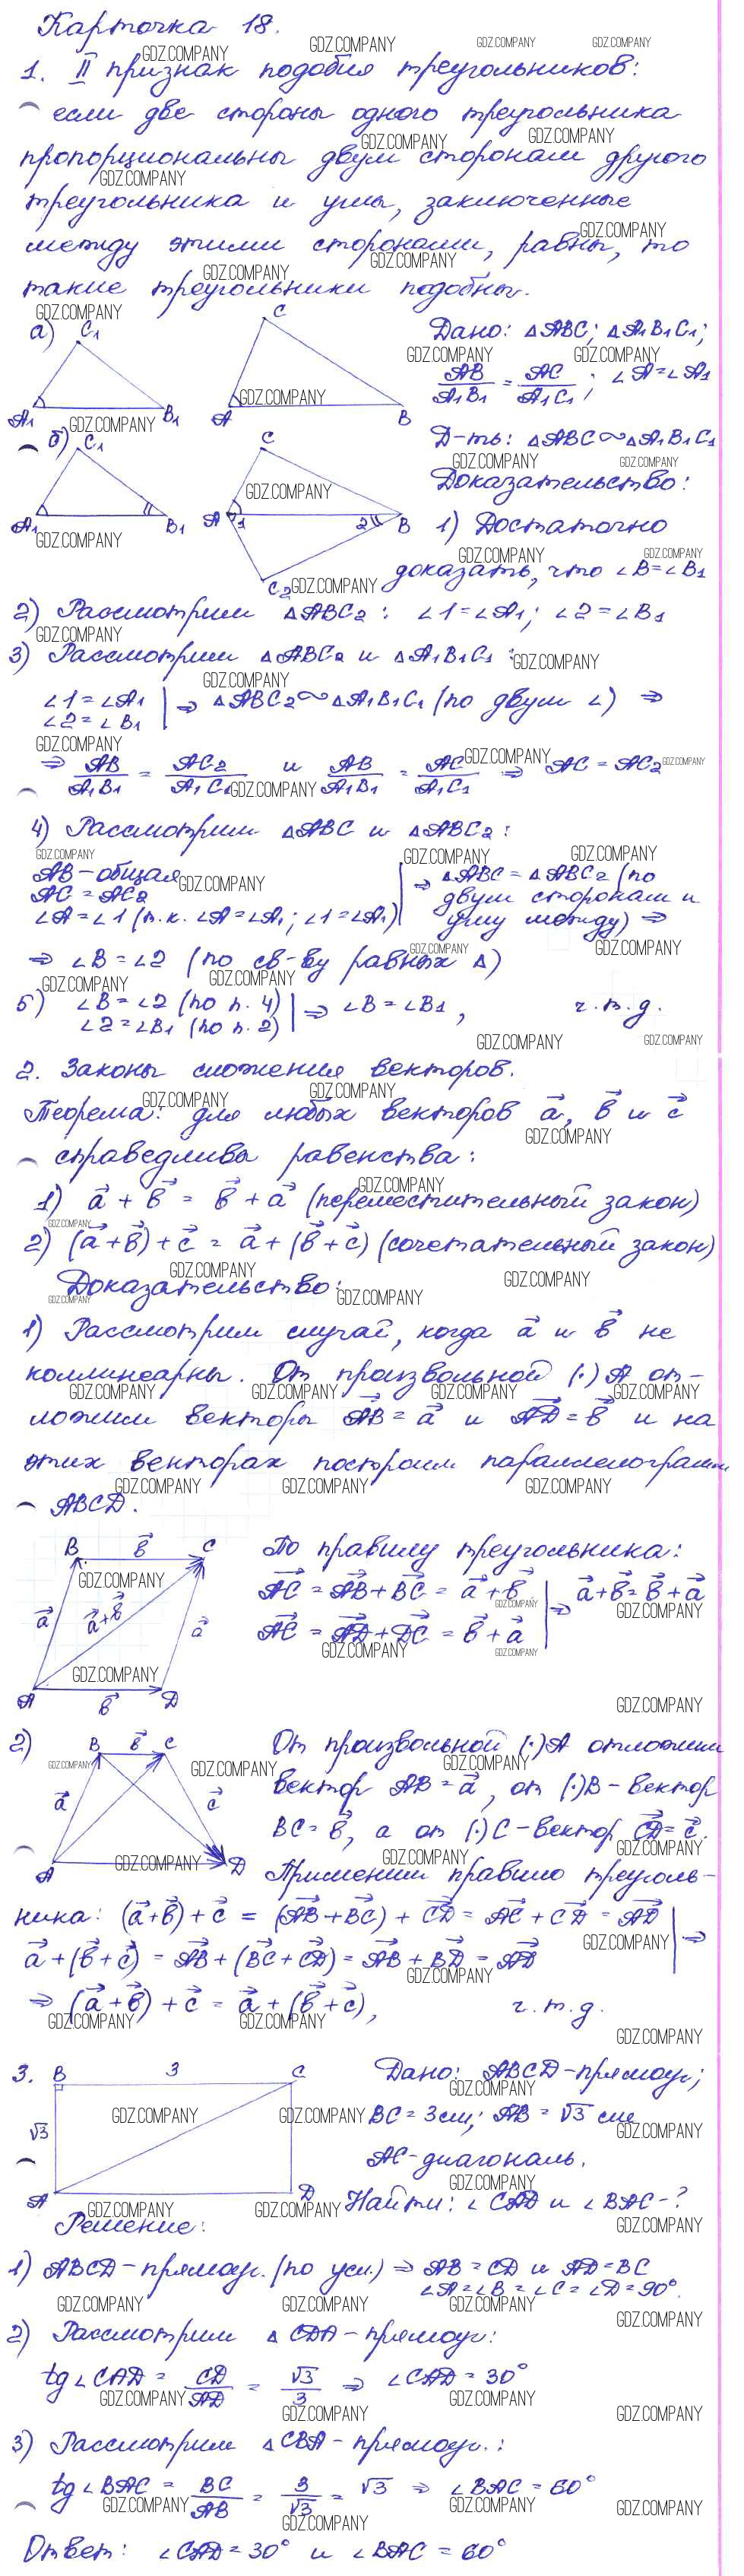 Карточка 18.
1. II признак подобия треугольников:
если две стороны одного треугольника
пропорциональны двум сторонам другого
треугольника и углы, заключенные
между этими сторонами, равны, то
такие треугольники подобны.
а) C₁ C A₁ B₁ A B
Дано: △ABC; △A₁B₁C₁;
AB/A₁B₁ = AC/A₁C₁; ∠A=∠A₁
Д-ть: △ABC∼△A₁B₁C₁
б) C₁ C A₁ B₁ A 1 2 B C₂
Доказательство:
1) Достаточно
доказать, что ∠B=∠B₁
2) Рассмотрим △ABC₂: ∠1=∠A₁; ∠2=∠B₁
3) Рассмотрим △ABC₂ и △A₁B₁C₁:
∠1=∠A₁
∠2=∠B₁ | ⇒ △ABC₂∼△A₁B₁C₁ (по двум ∠) ⇒
⇒ AB/A₁B₁ = AC₂/A₁C₁ и AB/A₁B₁ = AC/A₁C₁ ⇒ AC = AC₂
4) Рассмотрим △ABC и △ABC₂:
AB-общая
AC = AC₂
∠A=∠1 (т.к. ∠A=∠A₁; ∠1=∠A₁) | ⇒ △ABC = △ABC₂ (по
двум сторонам и
углу между) ⇒
⇒ ∠B=∠2 (по св-ву равных △)
5) ∠B=∠2 (по п. 4)
∠2=∠B₁ (по п. 2) | ⇒ ∠B=∠B₁, ч.т.д.
2. Законы сложения векторов.
Теорема: для любых векторов a⃗, b⃗ и c⃗
справедливы равенства:
1) a⃗ + b⃗ = b⃗ + a⃗ (переместительный закон)
2) (a⃗+b⃗)+c⃗ = a⃗+(b⃗+c⃗) (сочетательный закон)
Доказательство:
1) Рассмотрим случай, когда a⃗ и b⃗ не
коллинеарны. От произвольной (·)A от-
ложим векторы AB⃗=a⃗ и AD⃗=b⃗ и на
этих векторах построим параллелограмм
ABCD.
B b⃗ C a⃗ a⃗+b⃗ a⃗ A b⃗ D
По правилу треугольника:
AC⃗ = AB⃗+BC⃗ = a⃗+b⃗
AC⃗ = AD⃗+DC⃗ = b⃗+a⃗ | ⇒ a⃗+b⃗=b⃗+a⃗
2) B b⃗ C a⃗ c⃗ A D
От произвольной (·)A отложим
вектор AB=a⃗, от (·)B-вектор
BC=b⃗, а от (·)C-вектор CD⃗=c⃗.
Применим правило треуголь-
ника: (a⃗+b⃗)+c⃗ = (AB⃗+BC⃗)+CD⃗ = AC⃗+CD⃗ = AD⃗
a⃗+(b⃗+c⃗) = AB⃗+(BC⃗+CD⃗) = AB⃗+BD⃗ = AD⃗ | ⇒
⇒ (a⃗+b⃗)+c⃗ = a⃗+(b⃗+c⃗), ч.т.д.
3. B 3 C √3 A D
Дано: ABCD-прямоуг;
BC=3см; AB=√3 см
AC-диагональ.
Найти: ∠CAD и ∠BAC-?
Решение:
1) ABCD-прямоуг. (по усл.) ⇒ AB=CD и AD=BC
∠A=∠B=∠C=∠D=90°.
2) Рассмотрим △CDA-прямоуг:
tg∠CAD = CD/AD = √3/3 ⇒ ∠CAD=30°
3) Рассмотрим △CBA-прямоуг.:
tg∠BAC = BC/AB = 3/√3 = √3 ⇒ ∠BAC=60°
Ответ: ∠CAD=30° и ∠BAC=60°
GDZ.COMPANY